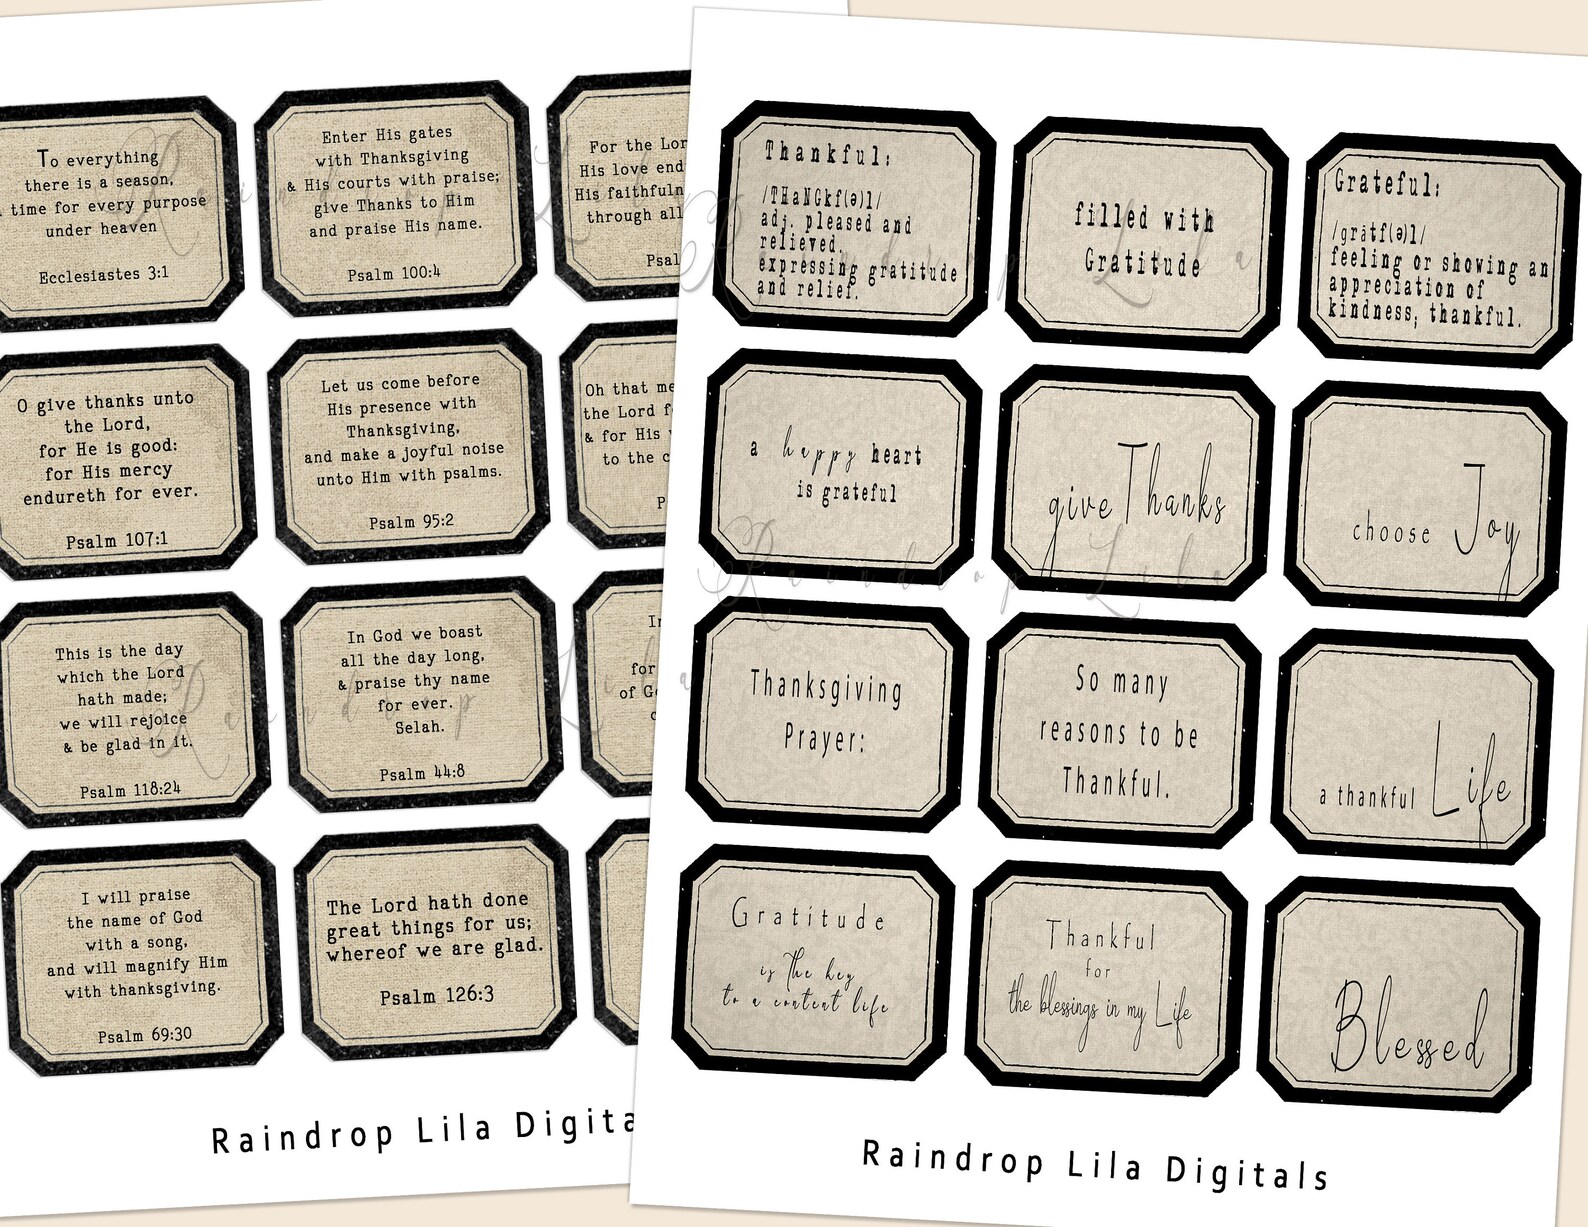 To everything
there is a season,
time for every purpose
under heaven
Ecclesiastes 3:1
Enter His gates
with Thanksgiving
& His courts with praise;
give Thanks to Him
and praise His name.
Psalm 100:4
For the Lor
His love end
His faithfuln
through all
Psal
O give thanks unto
the Lord,
for He is good:
for His mercy
endureth for ever.
Psalm 107:1
Let us come before
His presence with
Thanksgiving,
and make a joyful noise
unto Him with psalms.
Psalm 95:2
Oh that me
the Lord f
& for His
to the c
P
This is the day
which the Lord
hath made;
we will rejoice
& be glad in it.
Psalm 118:24
In God we boast
all the day long,
& praise thy name
for ever.
Selah.
Psalm 44:8
In
for
of Go
I will praise
the name of God
with a song,
and will magnify Him
with thanksgiving.
Psalm 69:30
The Lord hath done
great things for us;
whereof we are glad.
Psalm 126:3
Raindrop Lila Digita
Thankful:
/THaNGkf(ə)l/
adj. pleased and
relieved.
expressing gratitude
and relief.
filled with
Gratitude
Grateful:
/grātf(ə)l/
feeling or showing an
appreciation of
kindness; thankful.
a happy heart
is grateful
give Thanks
choose Joy
Thanksgiving
Prayer:
So many
reasons to be
Thankful.
a thankful Life
Gratitude
is the key
to a content life
Thankful
for
the blessings in my Life
Blessed
Raindrop Lila Digitals
Raindrop Lila
Raindrop Lila
Raindrop Lila
Raindrop Lila